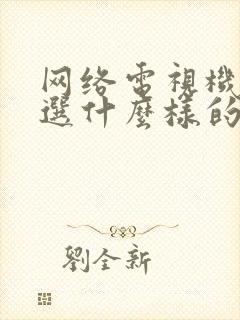 网络電視機
選什麼樣的
劉全新